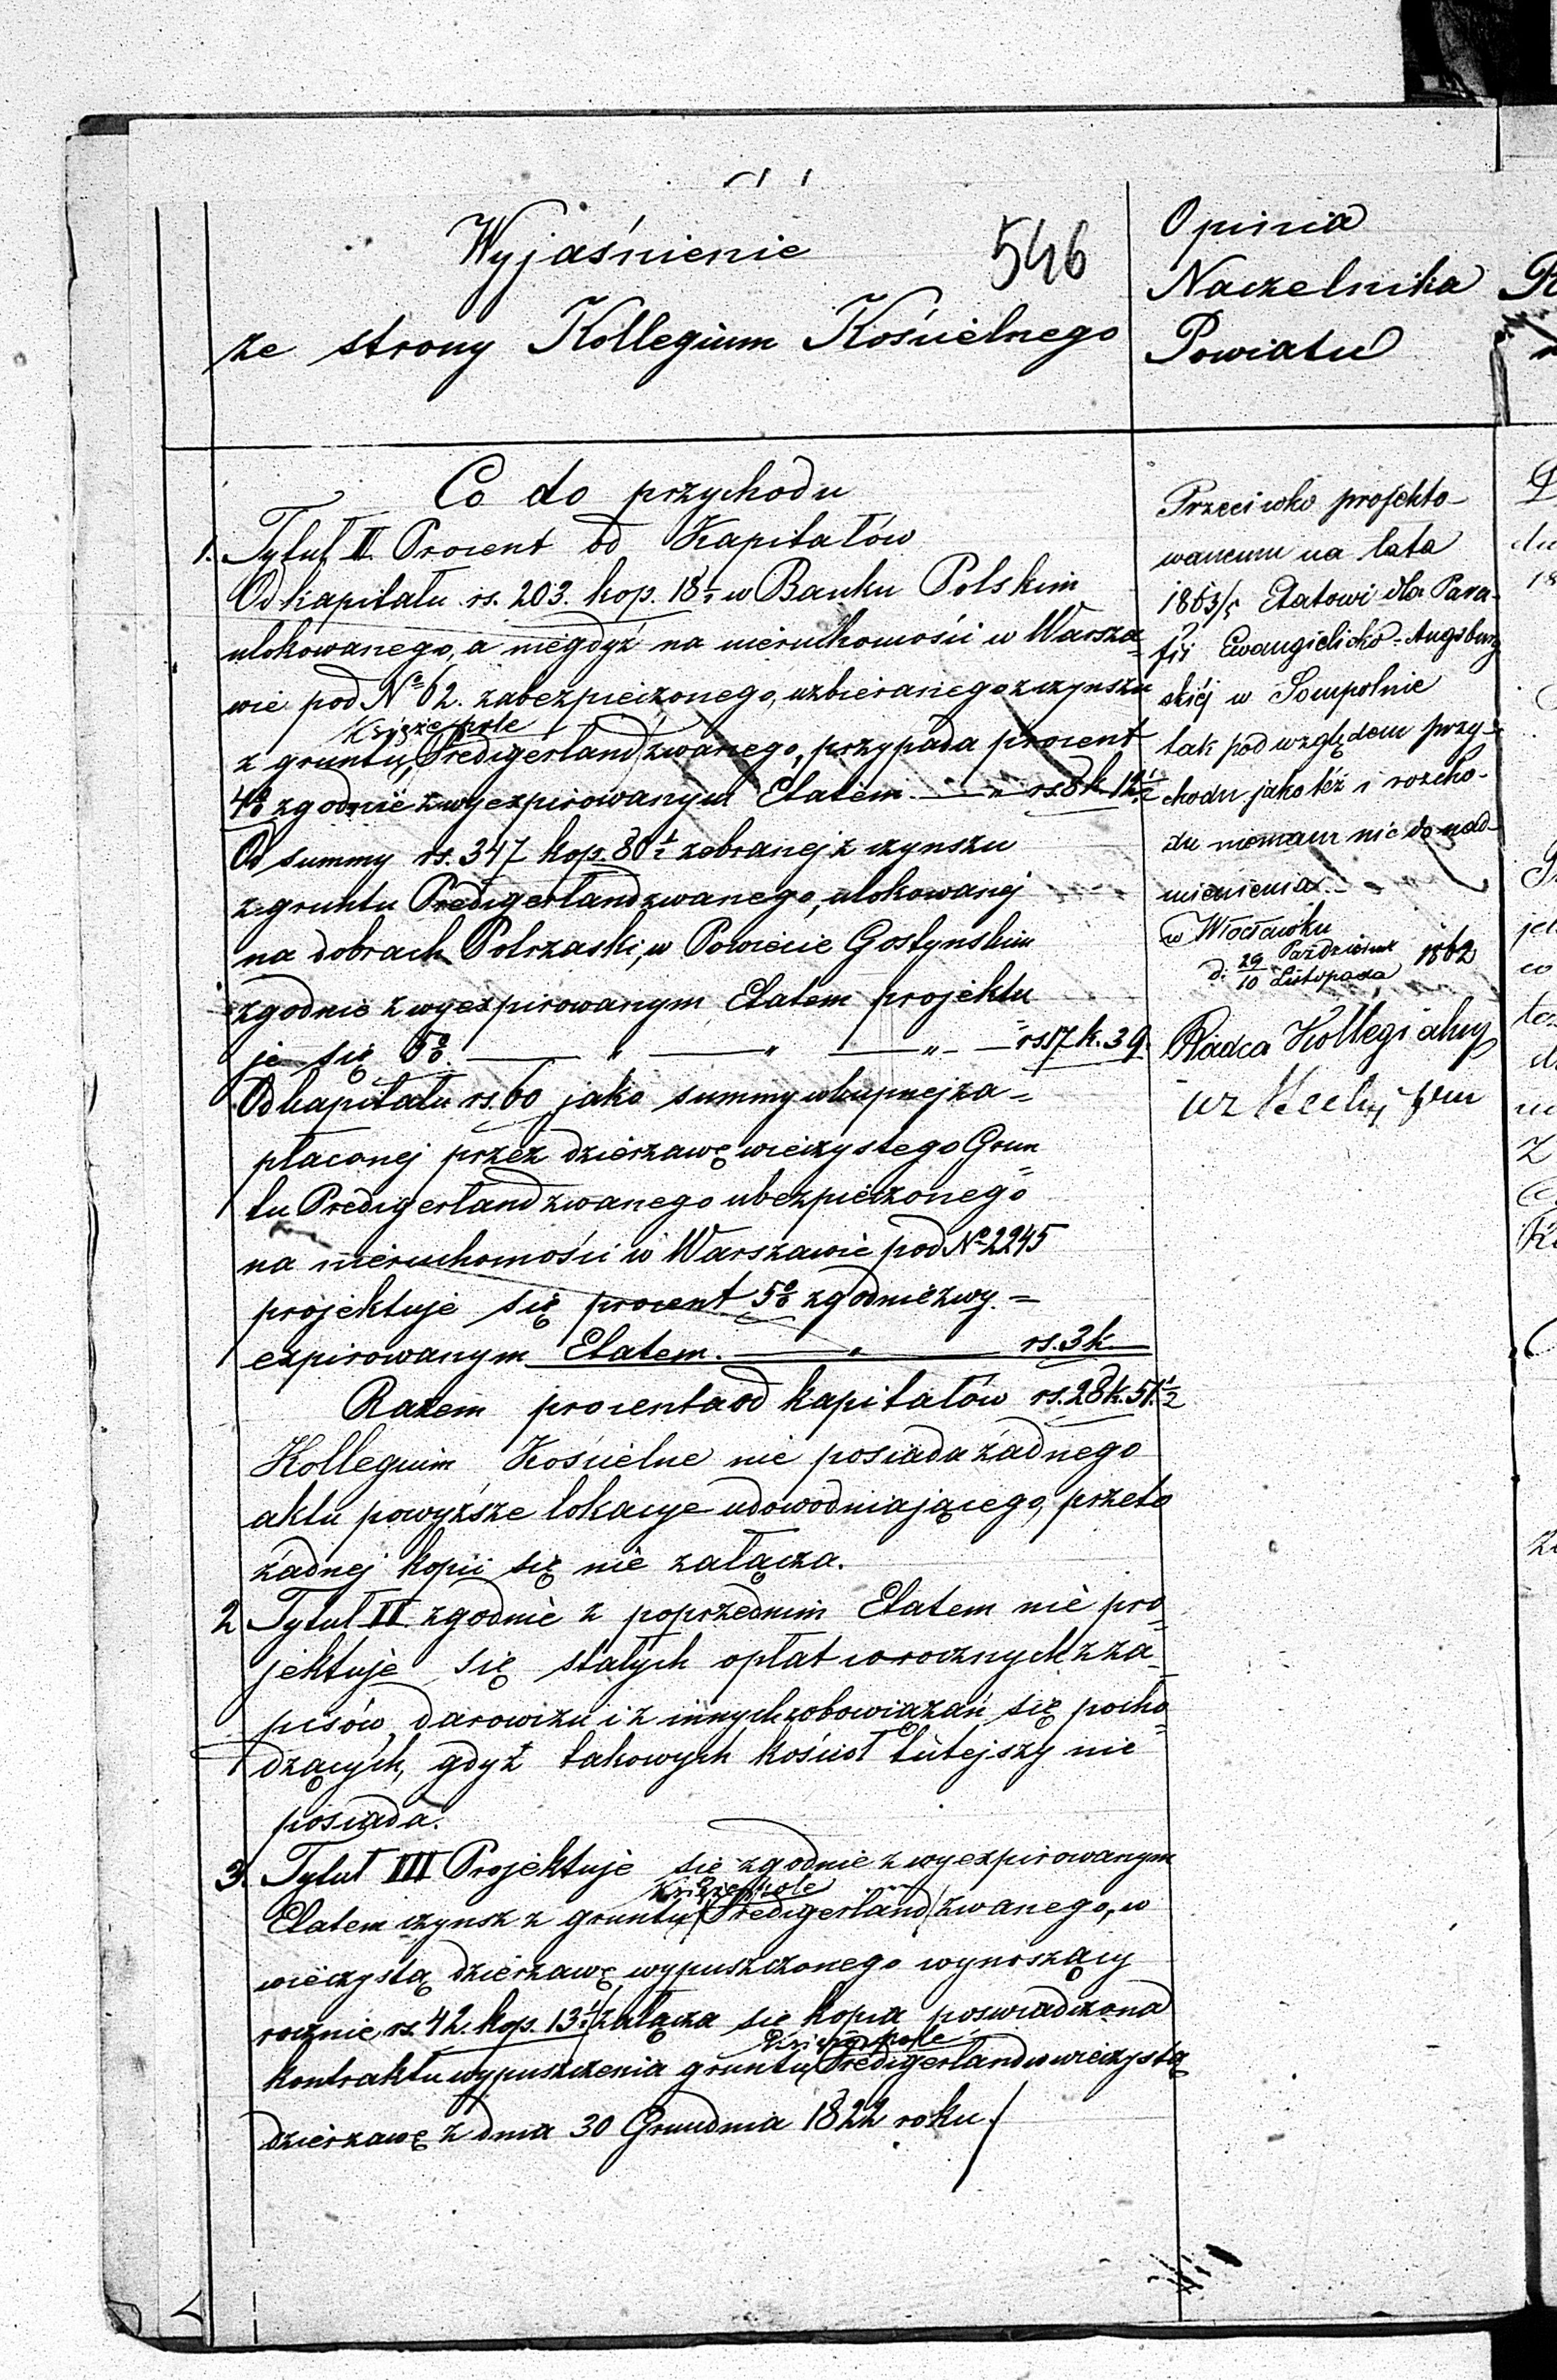 546
Wyjaśnienie
ze strony Kollegium Kościelnego
Co do przychodu
1. Tytuł II. Procent od Kapitałów
Od kapitału rs. 203. kop. 18½ w Banku Polskim
ulokowanego, a niegdyś na nieruchomości w Warsza=
wie pod No 62. zabezpieczonego, uzbieranego z czynszu
Księże pole
z gruntu, Predigerland zwanego, przypada procent
4% zgodnie z wyexpirowanym Etatem — „ rs. 8 k. 12½
Od summy rs. 347 kop. 80½ zebranej z czynszu
z gruntu Predigerland zwanego, ulokowanej
na dobrach Potrzaski, w Powiecie Gostynskim
zgodnie z wyexpirowanym Etatem projektu
je się 5%. — „ — „ — „ — rs 17 k. 39.
Od kapitału rs. 60 jako summy wkupnej za=
płaconej przez dzierzawę wieczystego Grun
tu Predigerland zwanego ubezpieczonego
na nieruchomości w Warszawie pod No 2245
projektuje się procent 5% zgodnie z wy=
expirowanym Etatem. — „ — rs. 3 k —
Razem procenta od kapitałów rs. 28 k. 51½
Kollegium Kościelne nie posiada żadnego
aktu powyższe lokacye udowodniającego, przeto
żadnej kopii się nie załącza.
2 Tytuł II zgodnie z poprzednim Etatem nie pro=
jektuje się stałych opłat corocznych z za=
pisów darowizn i z innych zobowiązań się pocho=
dzących, gdyż takowych kościoł tutejszy nie
posiada.
3. Tytuł III Projektuje sie zgodnie z wyexpirowanym
Księże pole
Etatem czynsz z gruntu (Predigerland) zwanego, w
wieczystą dzierzawę wypuszczonego wynoszący
rocznie rs 42. kop. 13½ załącza się kopia poswiadczona
Księże pole
kontraktu wypuszczenia gruntu Predigerland w wieczystą
dzierzawę z dnia 30 Grudnia 1822 roku.
Opinia
Naczelnika
Powiatu
Przeciwko projekto-
wanemu na lata
1863/5 Etatowi dla Para-
fii Ewangielicko-Augsburg
skiéj w Sompolnie
tak pod względem przy-
chodu jako też i rozcho-
du niemam nic do nad-
mienienia.
w Włocławku
d. 29 Październik / 10 Listopada 1862
Radca Kollegialny